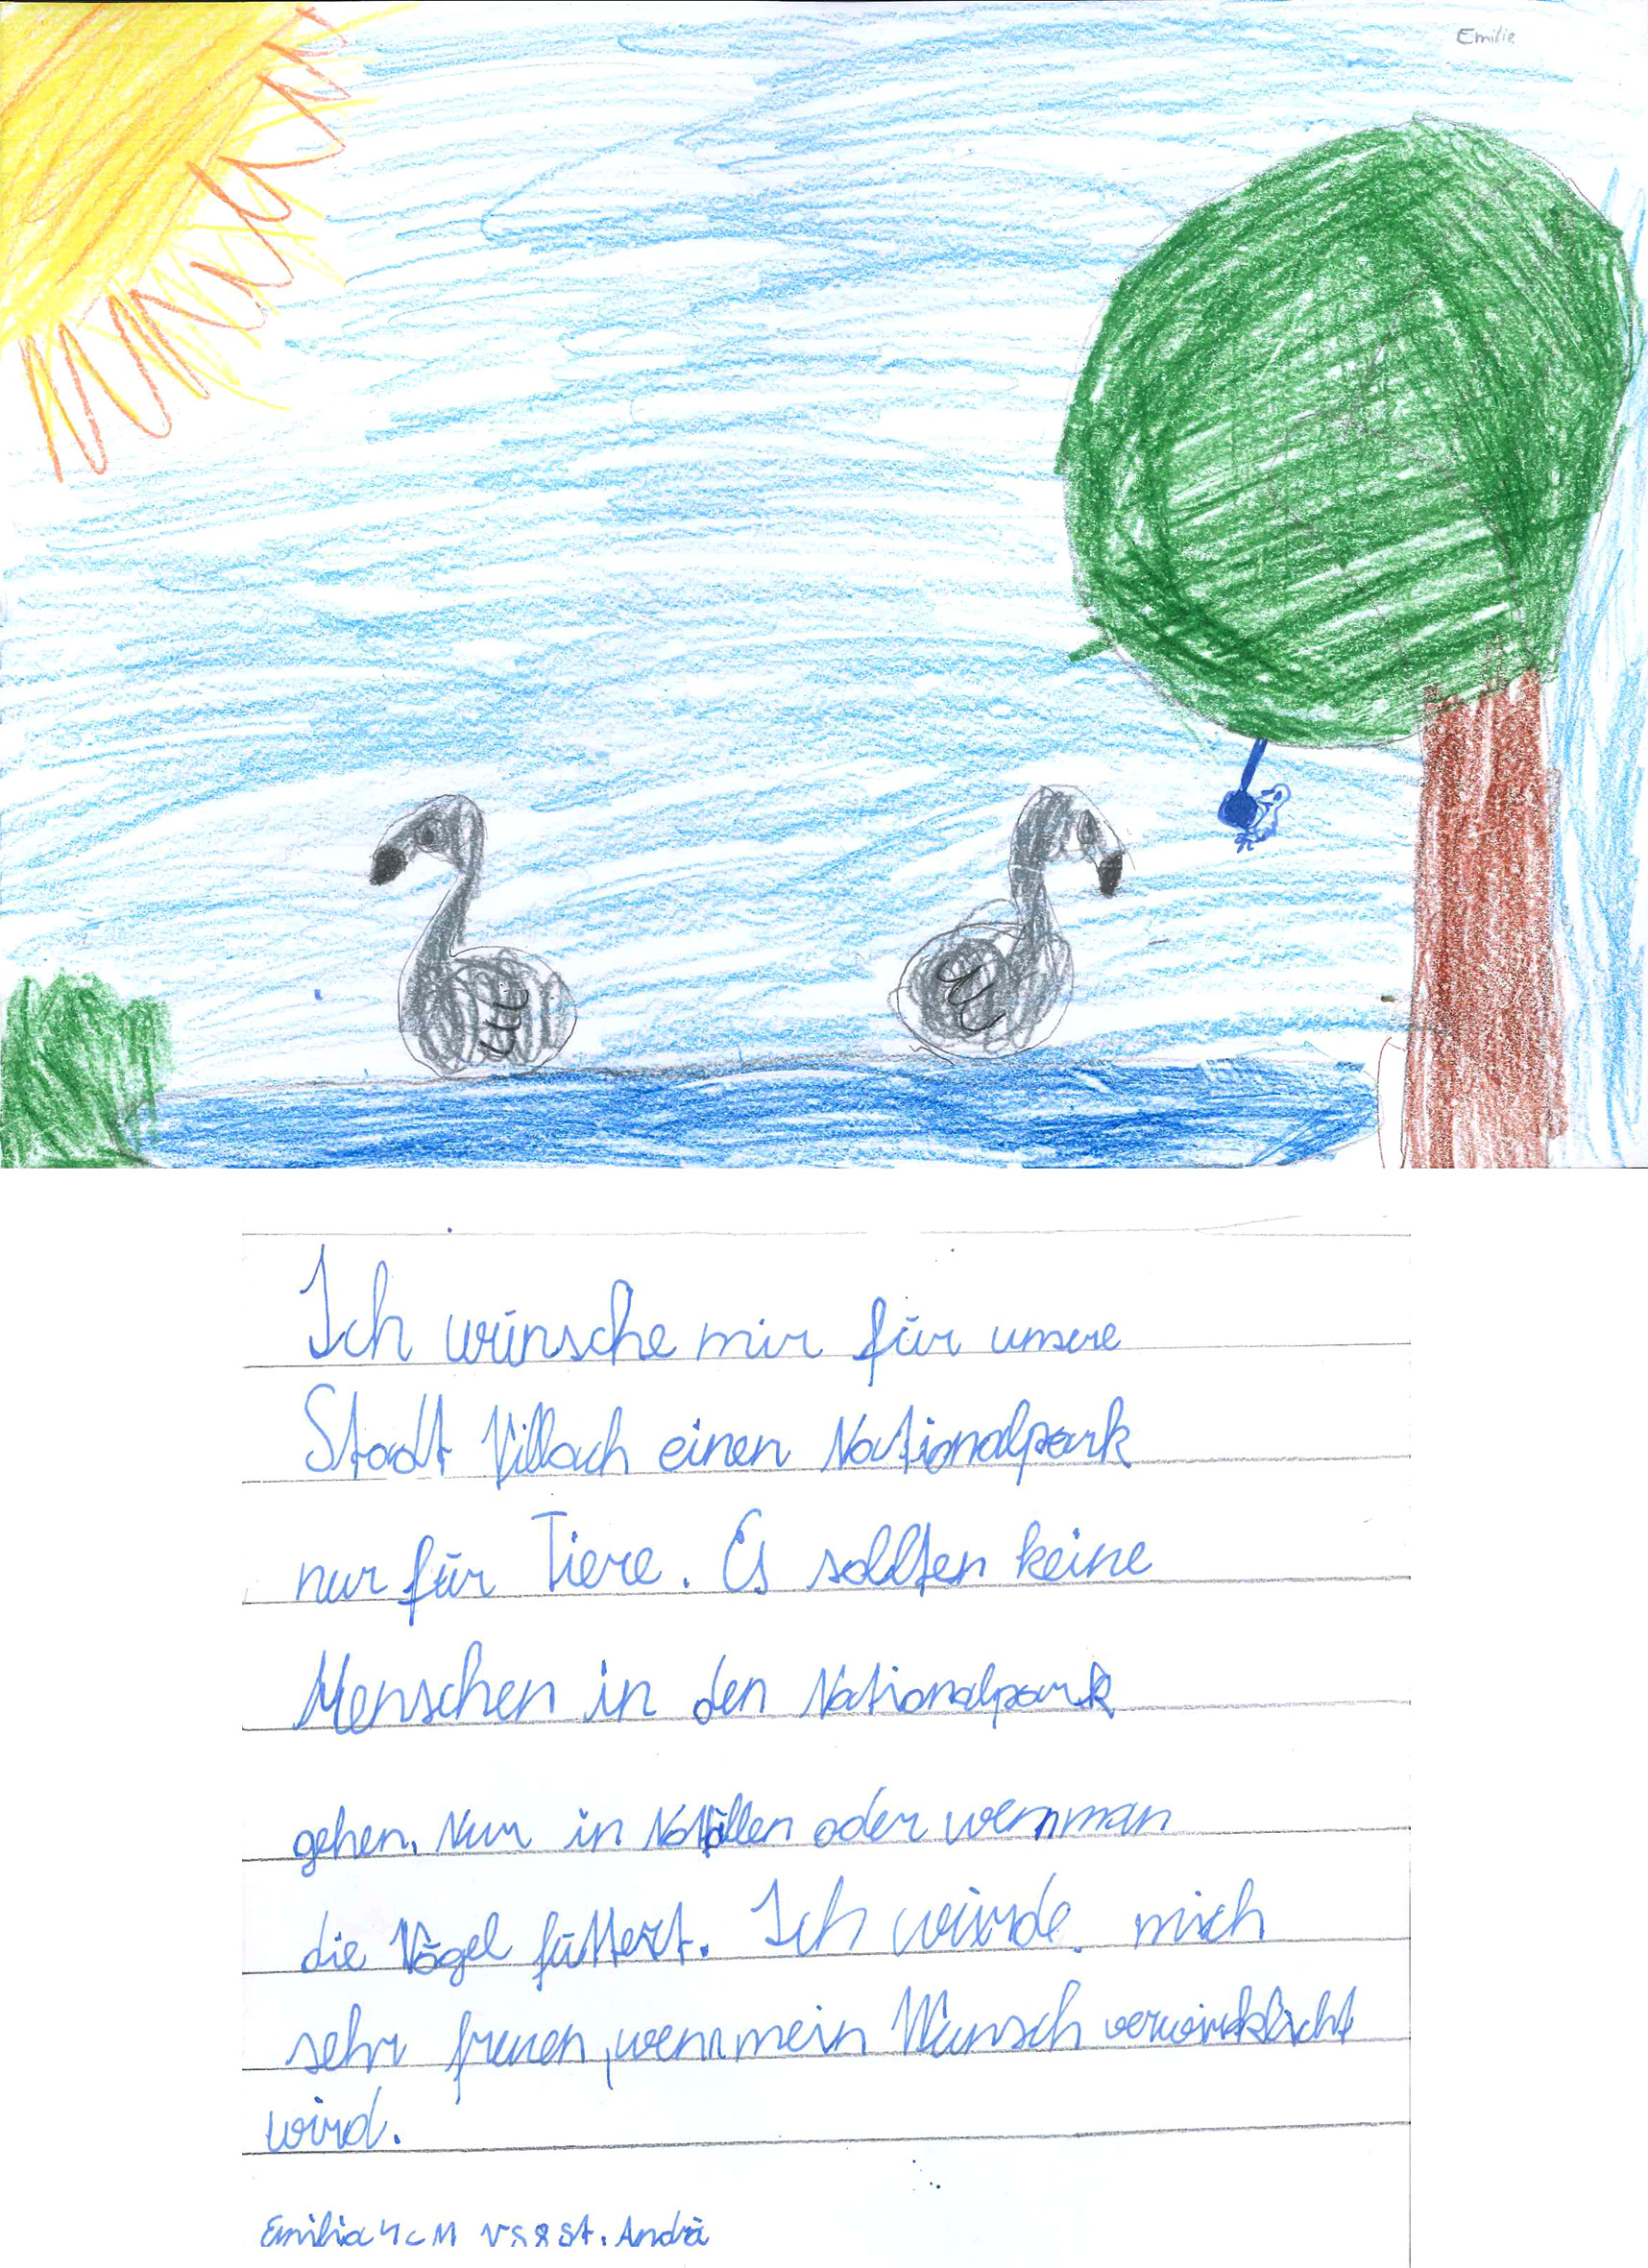 Emilie
Ich wünsche mir für unsere
Stadt Villach einen Nationalpark
nur für Tiere. Es sollten keine
Menschen in den Nationalpark
gehen. Nur in Notfällen oder wenn man
die Vögel füttert. Ich würde mich
sehr freuen, wenn mein Wunsch verwirklicht
wird.
Emilia 4c M VS 8 St. Andrä